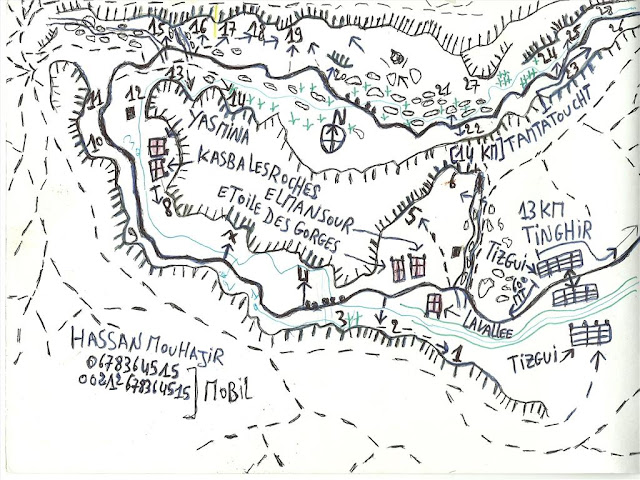 15 16 17 18 19
20
24 25
23
28
27
21
22
11
12
13
14
10
N
YASMINA
KASBA LES ROCHES
ELMANSOUR
ETOILE DES GORGES
[14 KM] TAMTATOUCHT
8
7
6
5
4
3
2
1
13 KM
TINGHIR
TIZGUI
LAVALLEE
TIZGUI
HASSAN MOUHAJIR
0678364515
00212678364515
MOBIL